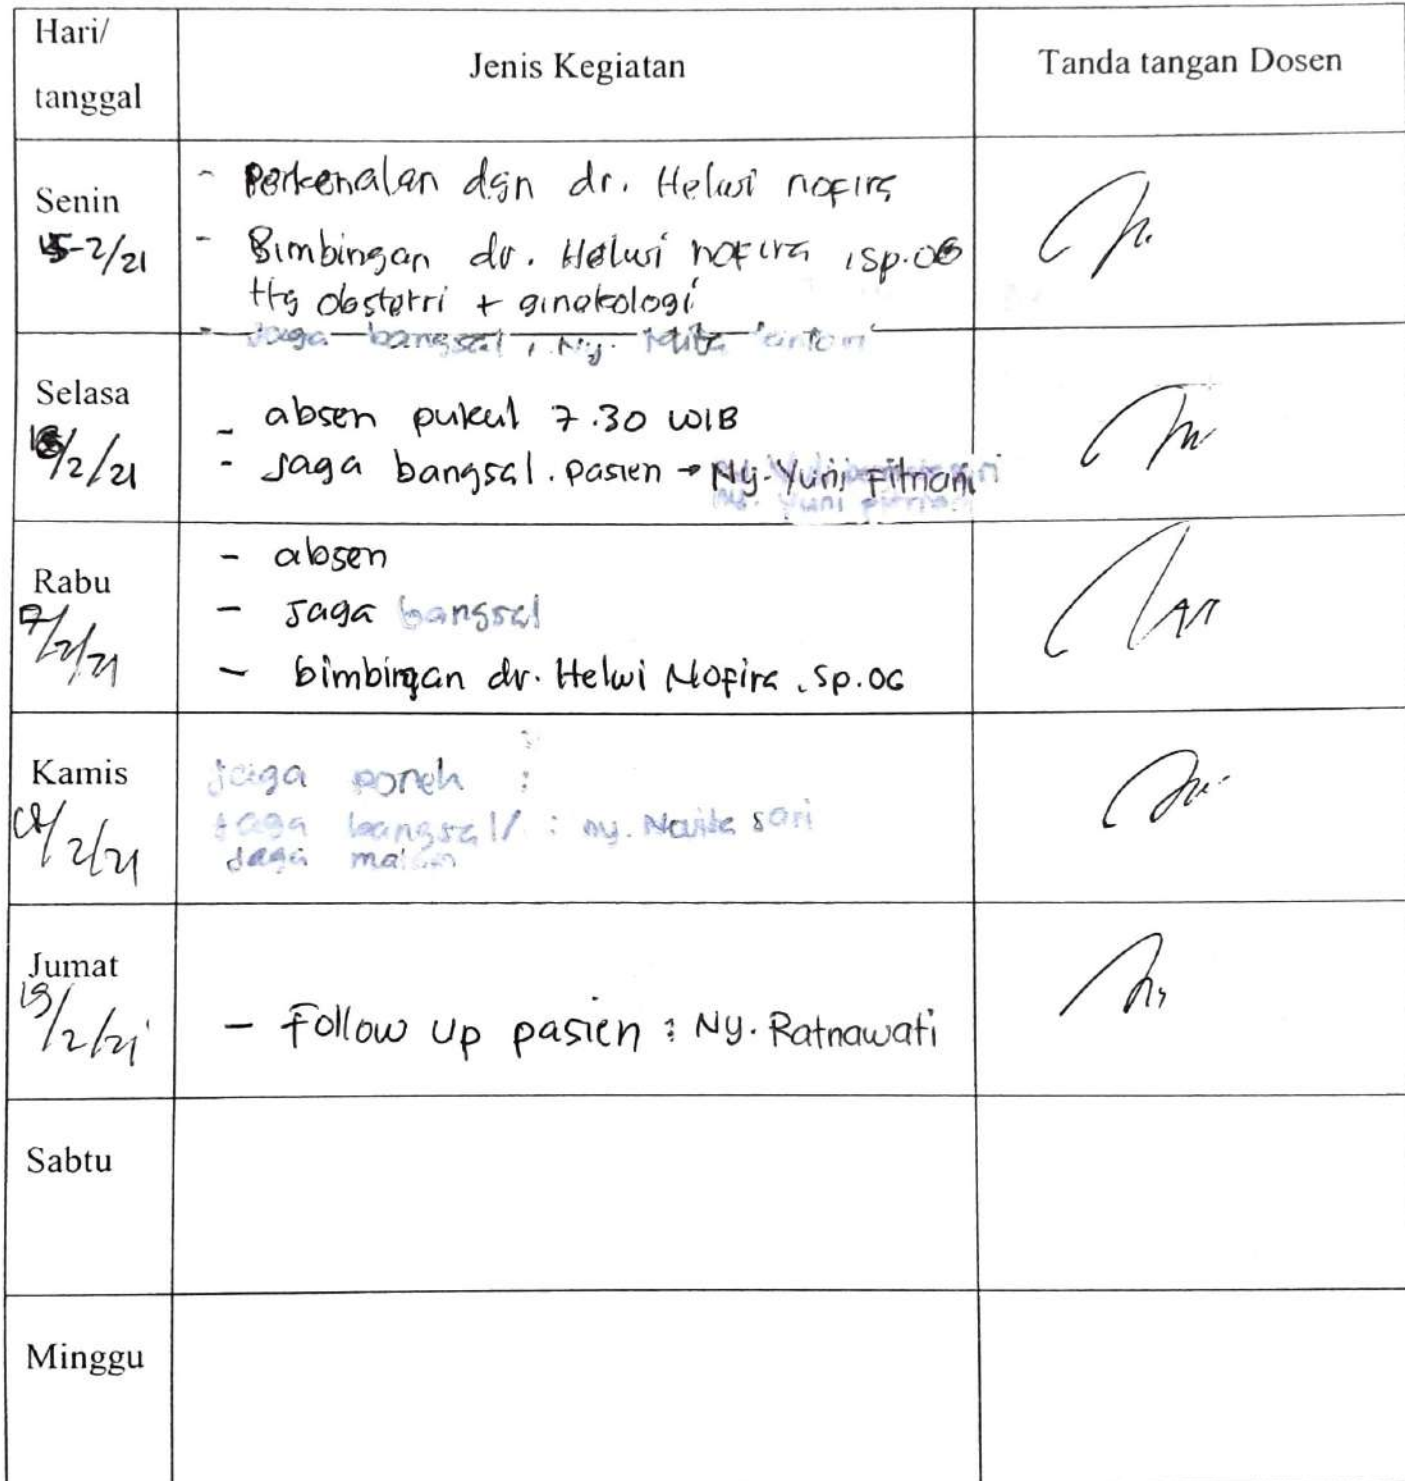 Hari/
tanggal
Jenis Kegiatan
Tanda tangan Dosen
Senin
15-2/21
- Perkenalan dgn dr. Helwi nofira
- Bimbingan dr. Helwi nofira, sp.OG
ttg obstetri + ginekologi
- Jaga bangsal, Ny.
Selasa
16/2/21
- absen pukul 7.30 WIB
- Jaga bangsal. pasien → Ny. Yuni Fitriani
Ny. Yuni Fitriani
Rabu
17/2/21
- absen
- Jaga bangsal
- bimbingan dr. Helwi Nofira, Sp.OG
Kamis
/2/21
jaga ponek :
jaga bangsal/ : ny. Navita sari
Jaga malam
Jumat
19/2/21
- Follow up pasien : Ny. Ratnawati
Sabtu
Minggu